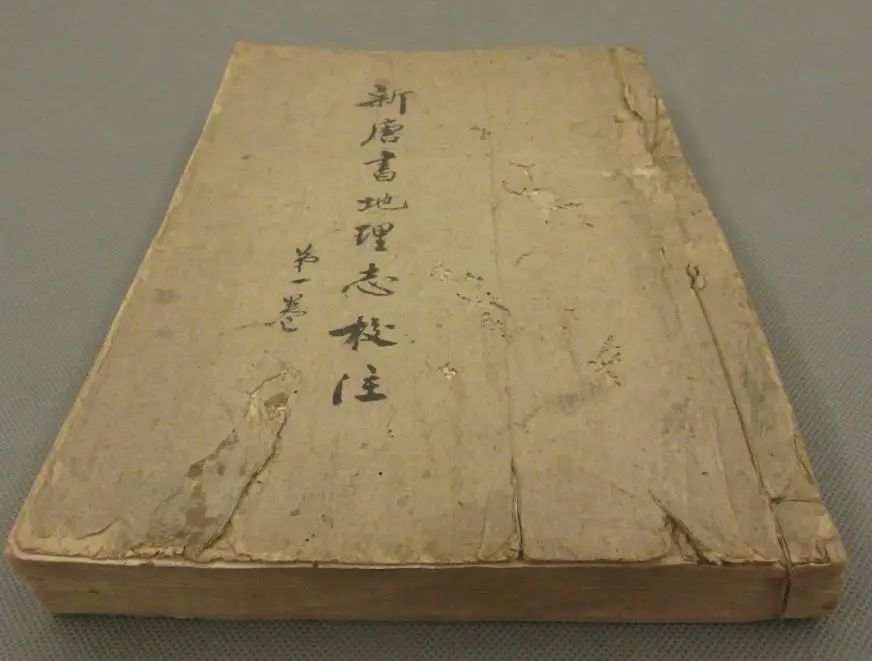 新唐書地理志校注
第一卷